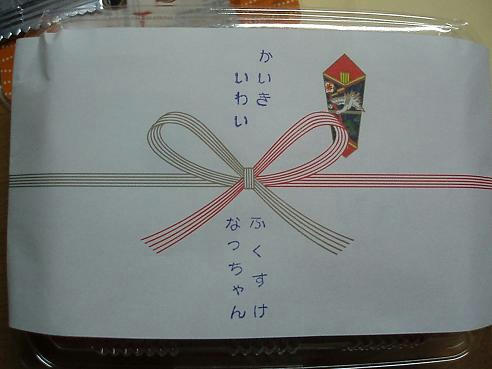 かいき
いわい
ふくすけ
なっちゃん